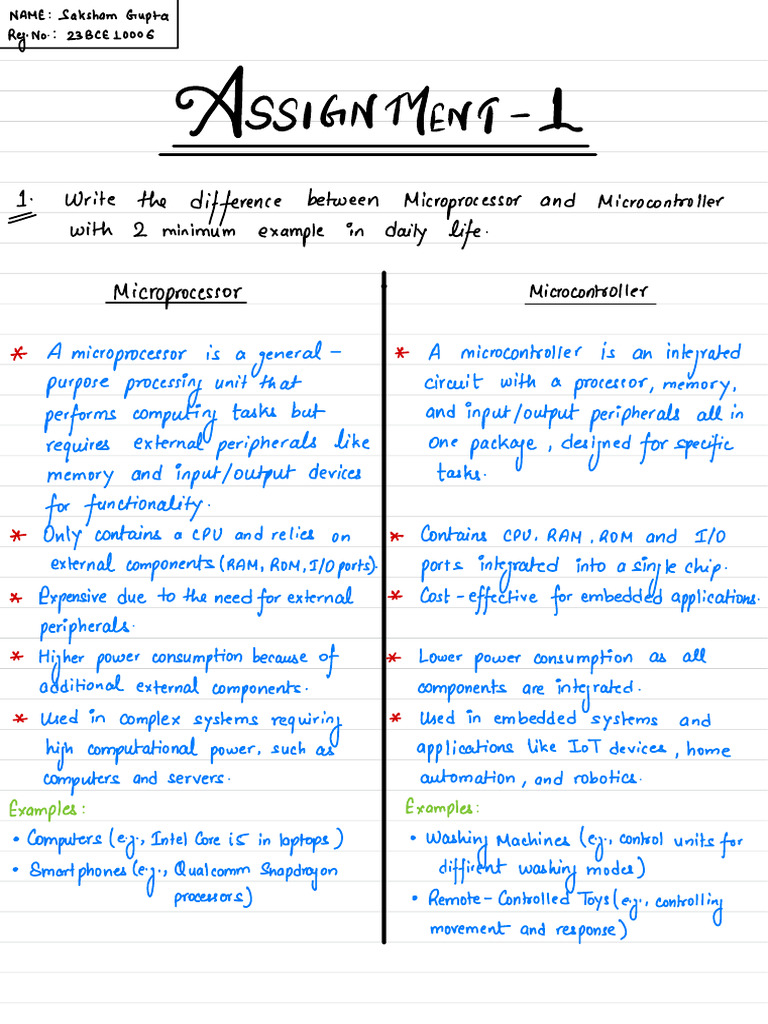 NAME: Saksham Gupta
Reg. No.: 23BCE10006
ASSIGNMENT-1
1. Write the difference between Microprocessor and Microcontroller
with 2 minimum example in daily life.
Microprocessor
* A microprocessor is a general-
purpose processing unit that
performs computing tasks but
requires external peripherals like
memory and input/output devices
for functionality.
* Only contains a CPU and relies on
external components (RAM, ROM, I/O ports).
* Expensive due to the need for external
peripherals.
* Higher power consumption because of
additional external components.
* Used in complex systems requiring
high computational power, such as
computers and servers.
Examples:
• Computers (e.g., Intel Core i5 in laptops)
• Smartphones (e.g., Qualcomm Snapdragon
processors)
Microcontroller
* A microcontroller is an integrated
circuit with a processor, memory,
and input/output peripherals all in
one package, designed for specific
tasks.
* Contains CPU, RAM, ROM and I/O
ports integrated into a single chip.
* Cost-effective for embedded applications.
* Lower power consumption as all
components are integrated.
* Used in embedded systems and
applications like IoT devices, home
automation, and robotics.
Examples:
• Washing Machines (e.g., control units for
diffirent washing modes)
• Remote-Controlled Toys (e.g., controlling
movement and response)